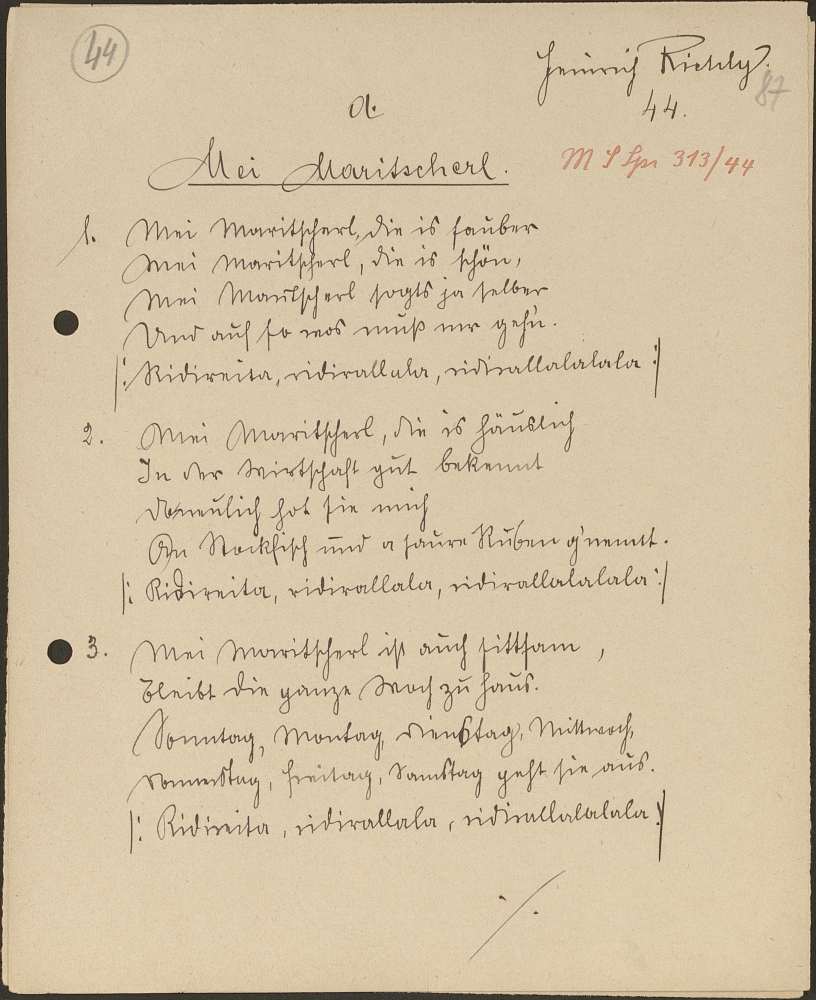 44
Heinrich Richly.
87
44.
a.
Mei Maritscherl.
313/44
1. Mei Maritscherl, die is sauber
Mei Maritscherl, die is schön,
Mei Maritscherl sogts ja selber
Und auf so wos muß mr gehn.
|: Ridireita, ridirallala, ridirallalalala :|
2. Mei Maritscherl, die is häuslich
In der Wirtschaft gut bekennt
neulich hot sie mich
An Stockfisch und a saure Ruben g'nennt.
|: Ridireita, ridirallala, ridirallalalala :|
3. Mei Maritscherl ist auch sittsam,
Bleibt die ganze Woch zu Haus.
Sonntag, Montag, Dienstag, Mittwoch,
Donnerstag, Freitag, Samstag geht sie aus.
|: Ridireita, ridirallala, ridirallalalala :|
./.